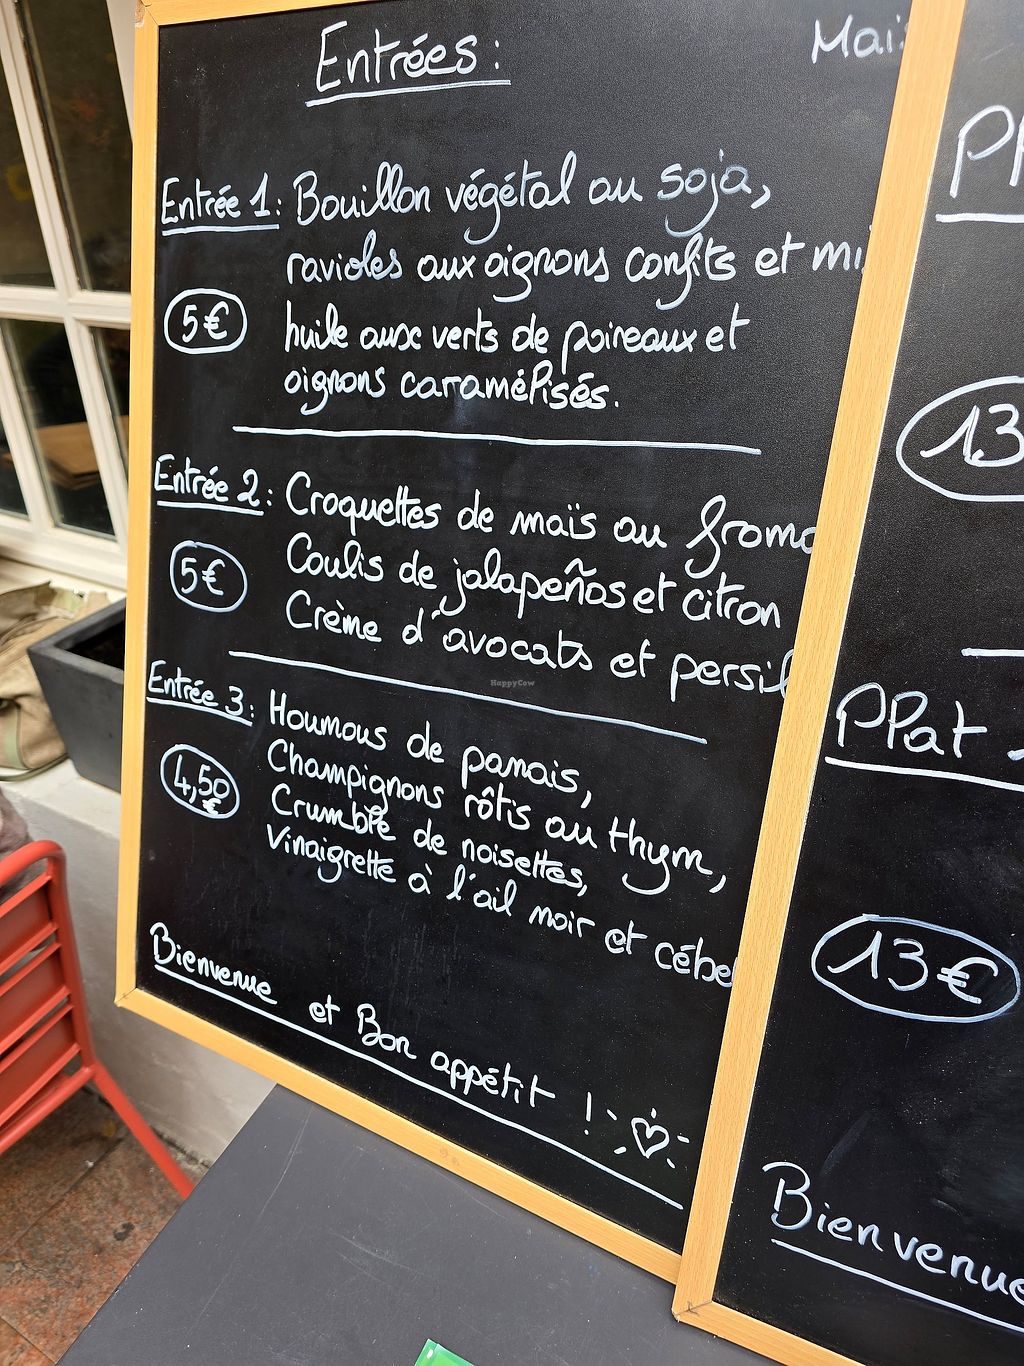 Entrées :
Entrée 1 : Bouillon végétal au soja,
ravioles aux oignons confits et
5€
huile aux verts de poireaux et
oignons caramélisés.
Entrée 2 : Croquettes de maïs au
5€
Coulis de jalapeños et citron
Crème d'avocats et
Entrée 3 : Houmous de panais,
4,50 €
Champignons rôtis au thym,
Crumble de noisettes,
Vinaigrette à l'ail noir et
Bienvenue et Bon appétit !
HappyCow
13
PPat
13€
Bienvenue